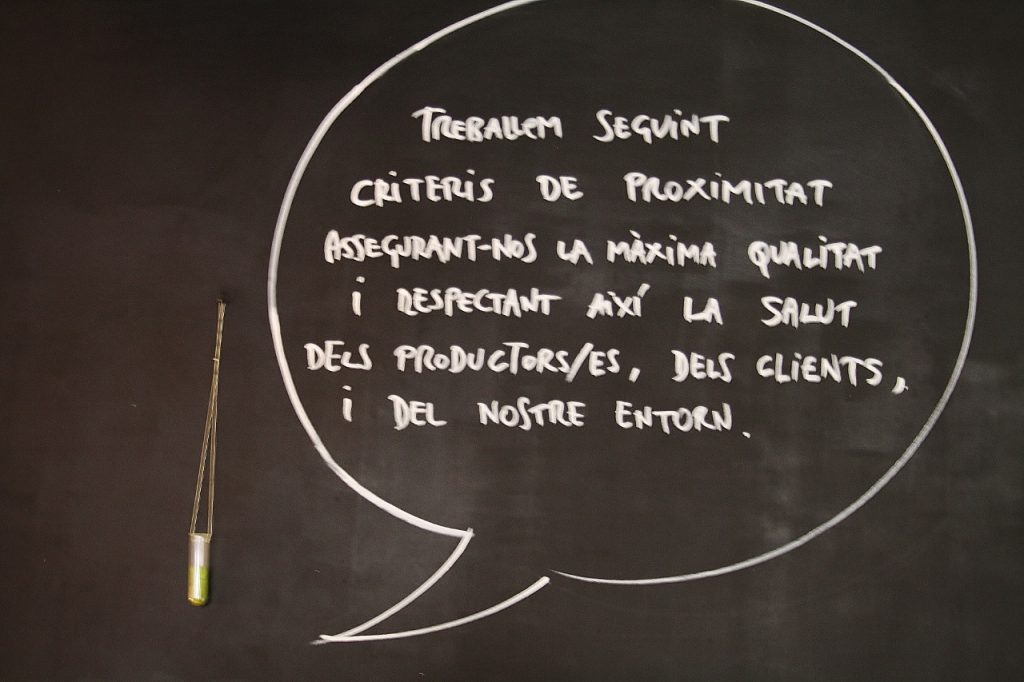 TREBALLEM SEGUINT
CRITERIS DE PROXIMITAT
ASSEGURANT-NOS LA MÀXIMA QUALITAT
I RESPECTANT AIXÍ LA SALUT
DELS PRODUCTORS/ES, DELS CLIENTS,
I DEL NOSTRE ENTORN.